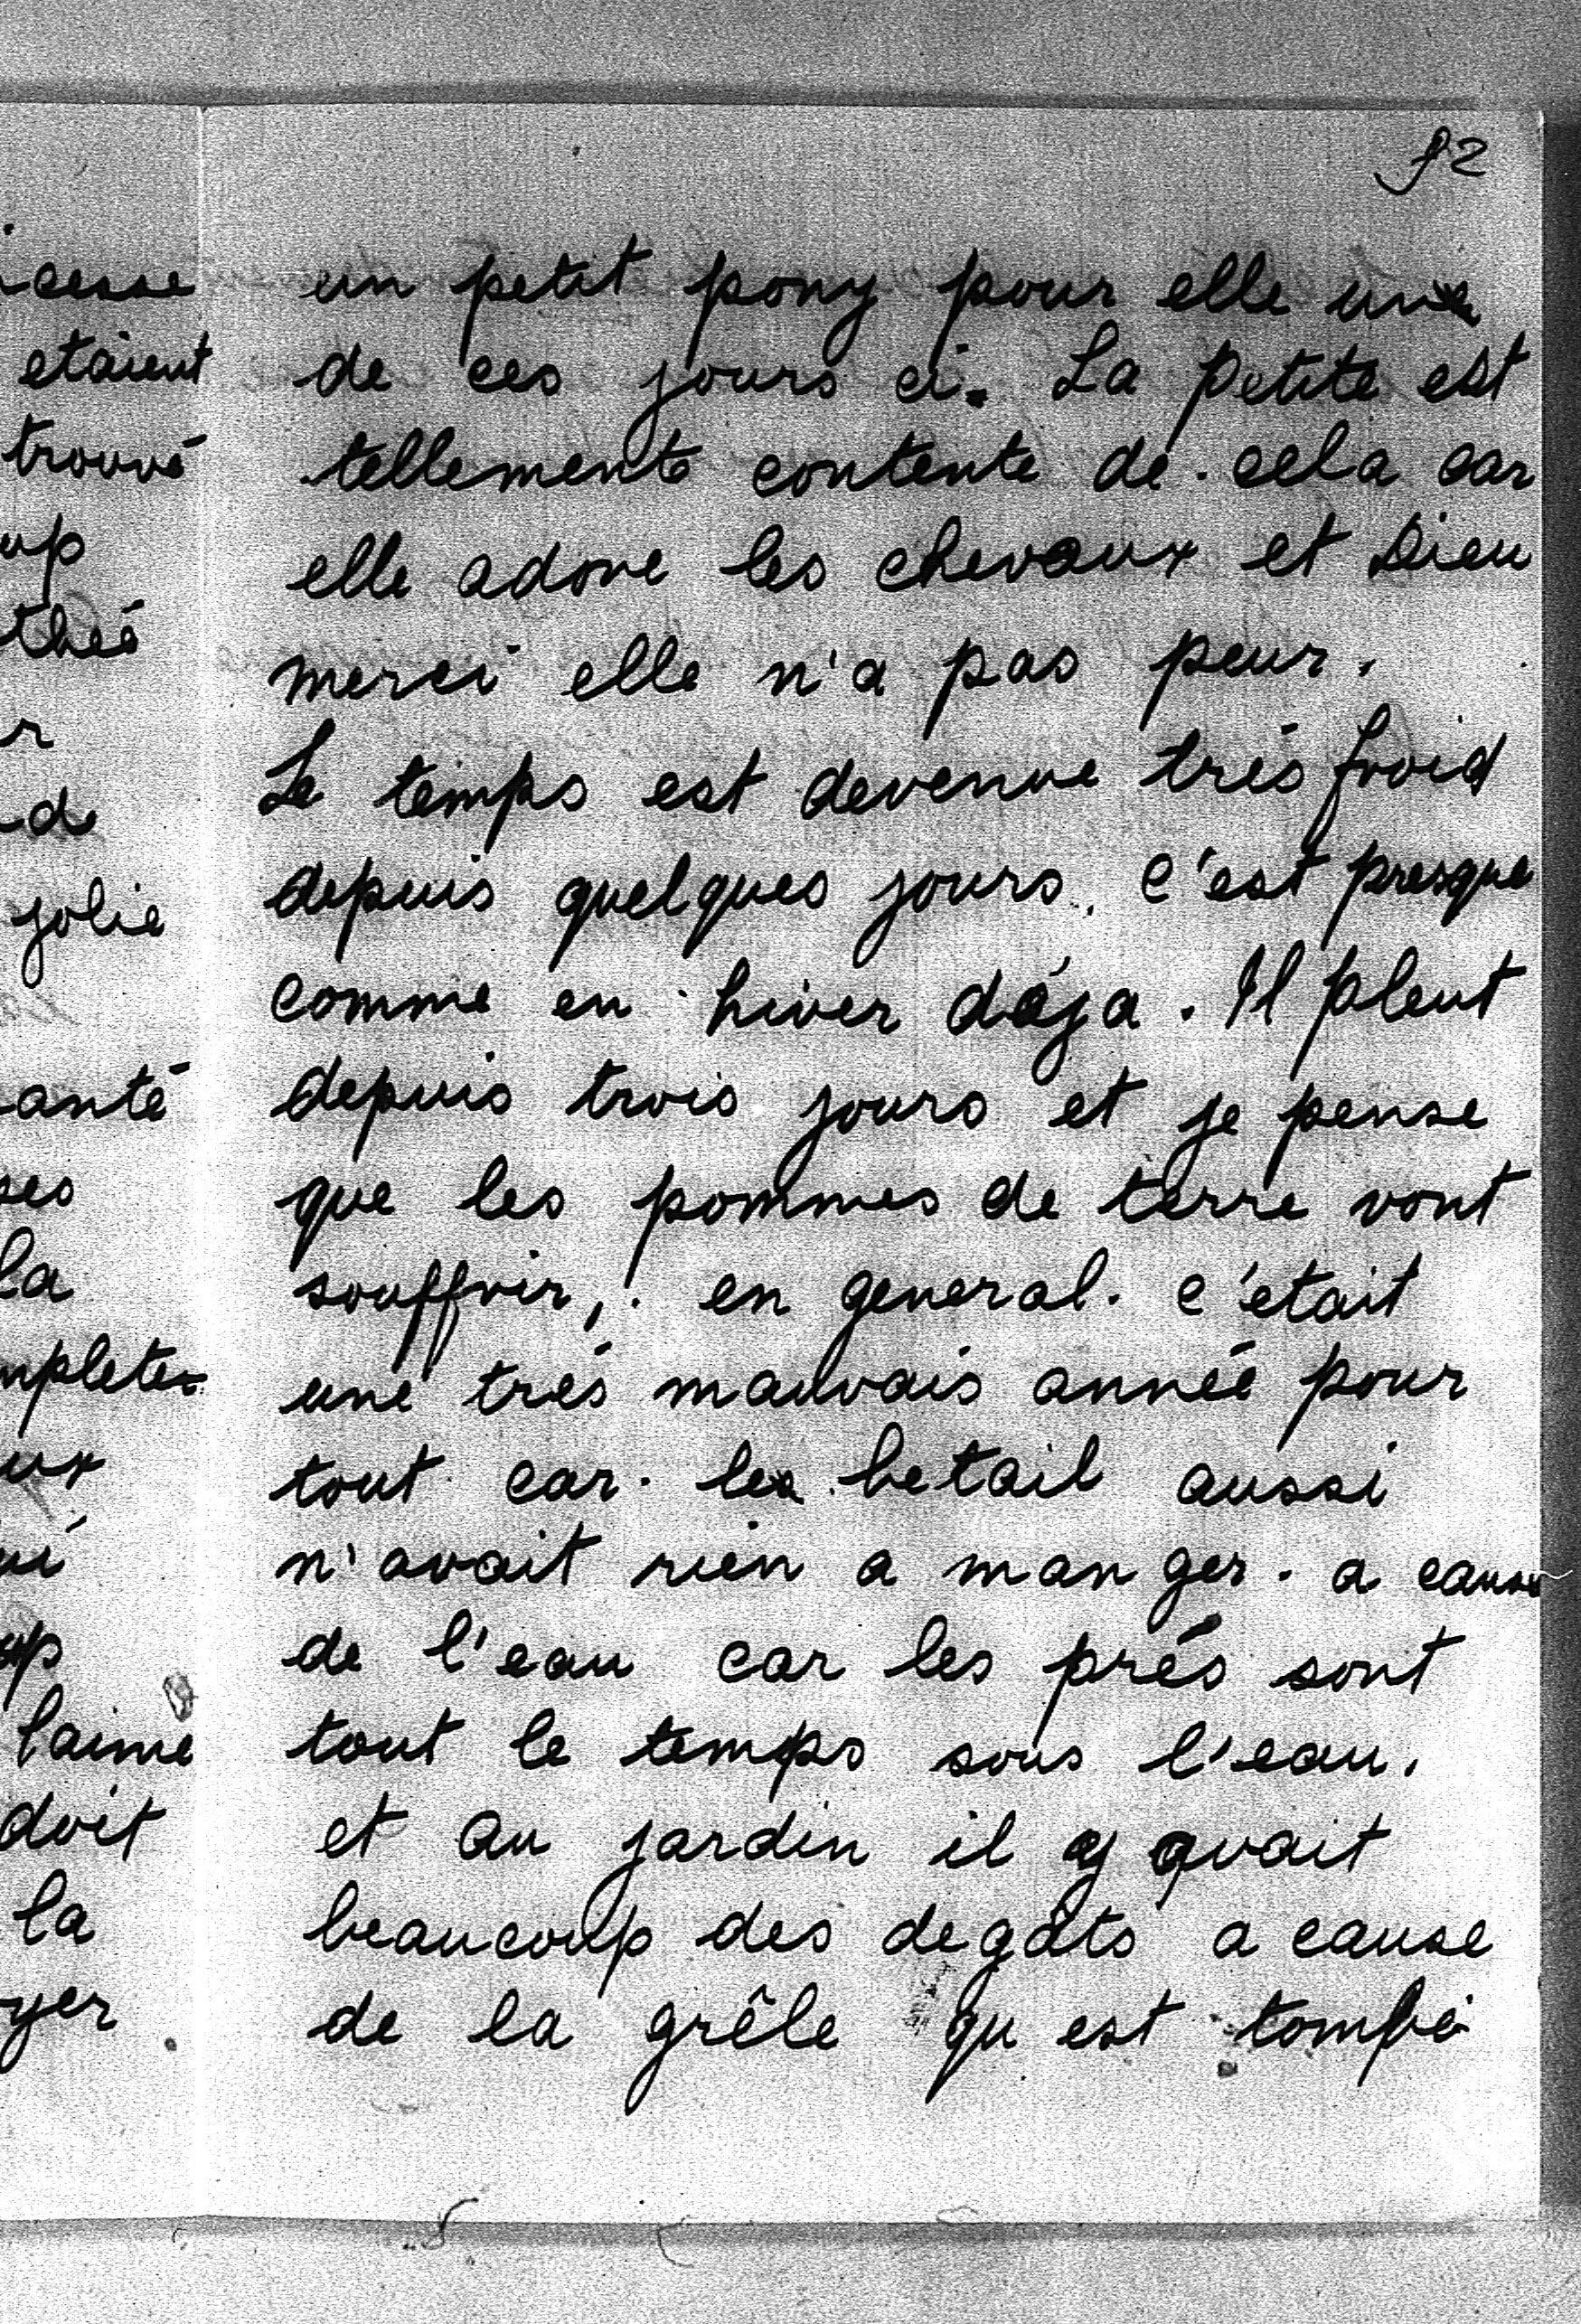 92
cesse
etaient
trouvé
up
theé
r
de
jolie
anté
ses
la
mplete-
ux
ui
up
l'aime
doit
la
yer
un petit pony pour elle un
de ces jours ci. La petite est
tellemente contente de cela car
elle adore les chevaux et Dieu
merci elle n'a pas peur.
Le temps est devenue trés froid
depuis quelques jours. C'est presque
comme en hiver déja. Il pleut
depuis trois jours et je pense
que les pommes de terre vont
souffrir, en general. c'etait
une trés mauvais année pour
tout car le betail aussi
n'avait rien a manger. a cause
de l'eau car les prés sont
tout le temps sous l'eau.
et au jardin il y avait
beaucoup des degâts a cause
de la grêle qu est tombé